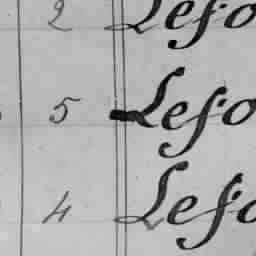 2 Lefo
5 Lefo
4 Lefo